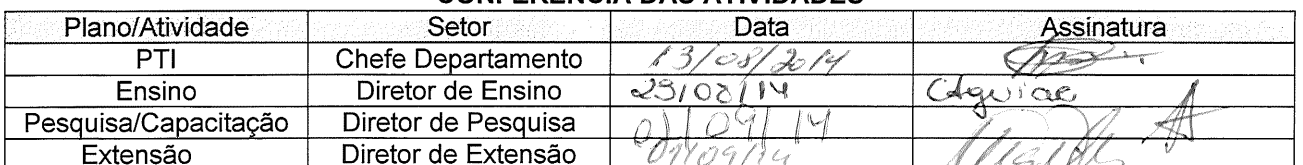 CONFERÊNCIA DAS ATIVIDADES
Plano/Atividade Setor Data Assinatura
PTI Chefe Departamento 13/08/2014
Ensino Diretor de Ensino 29/08/14 CAguiar
Pesquisa/Capacitação Diretor de Pesquisa 01/09/14
Extensão Diretor de Extensão 01/09/14